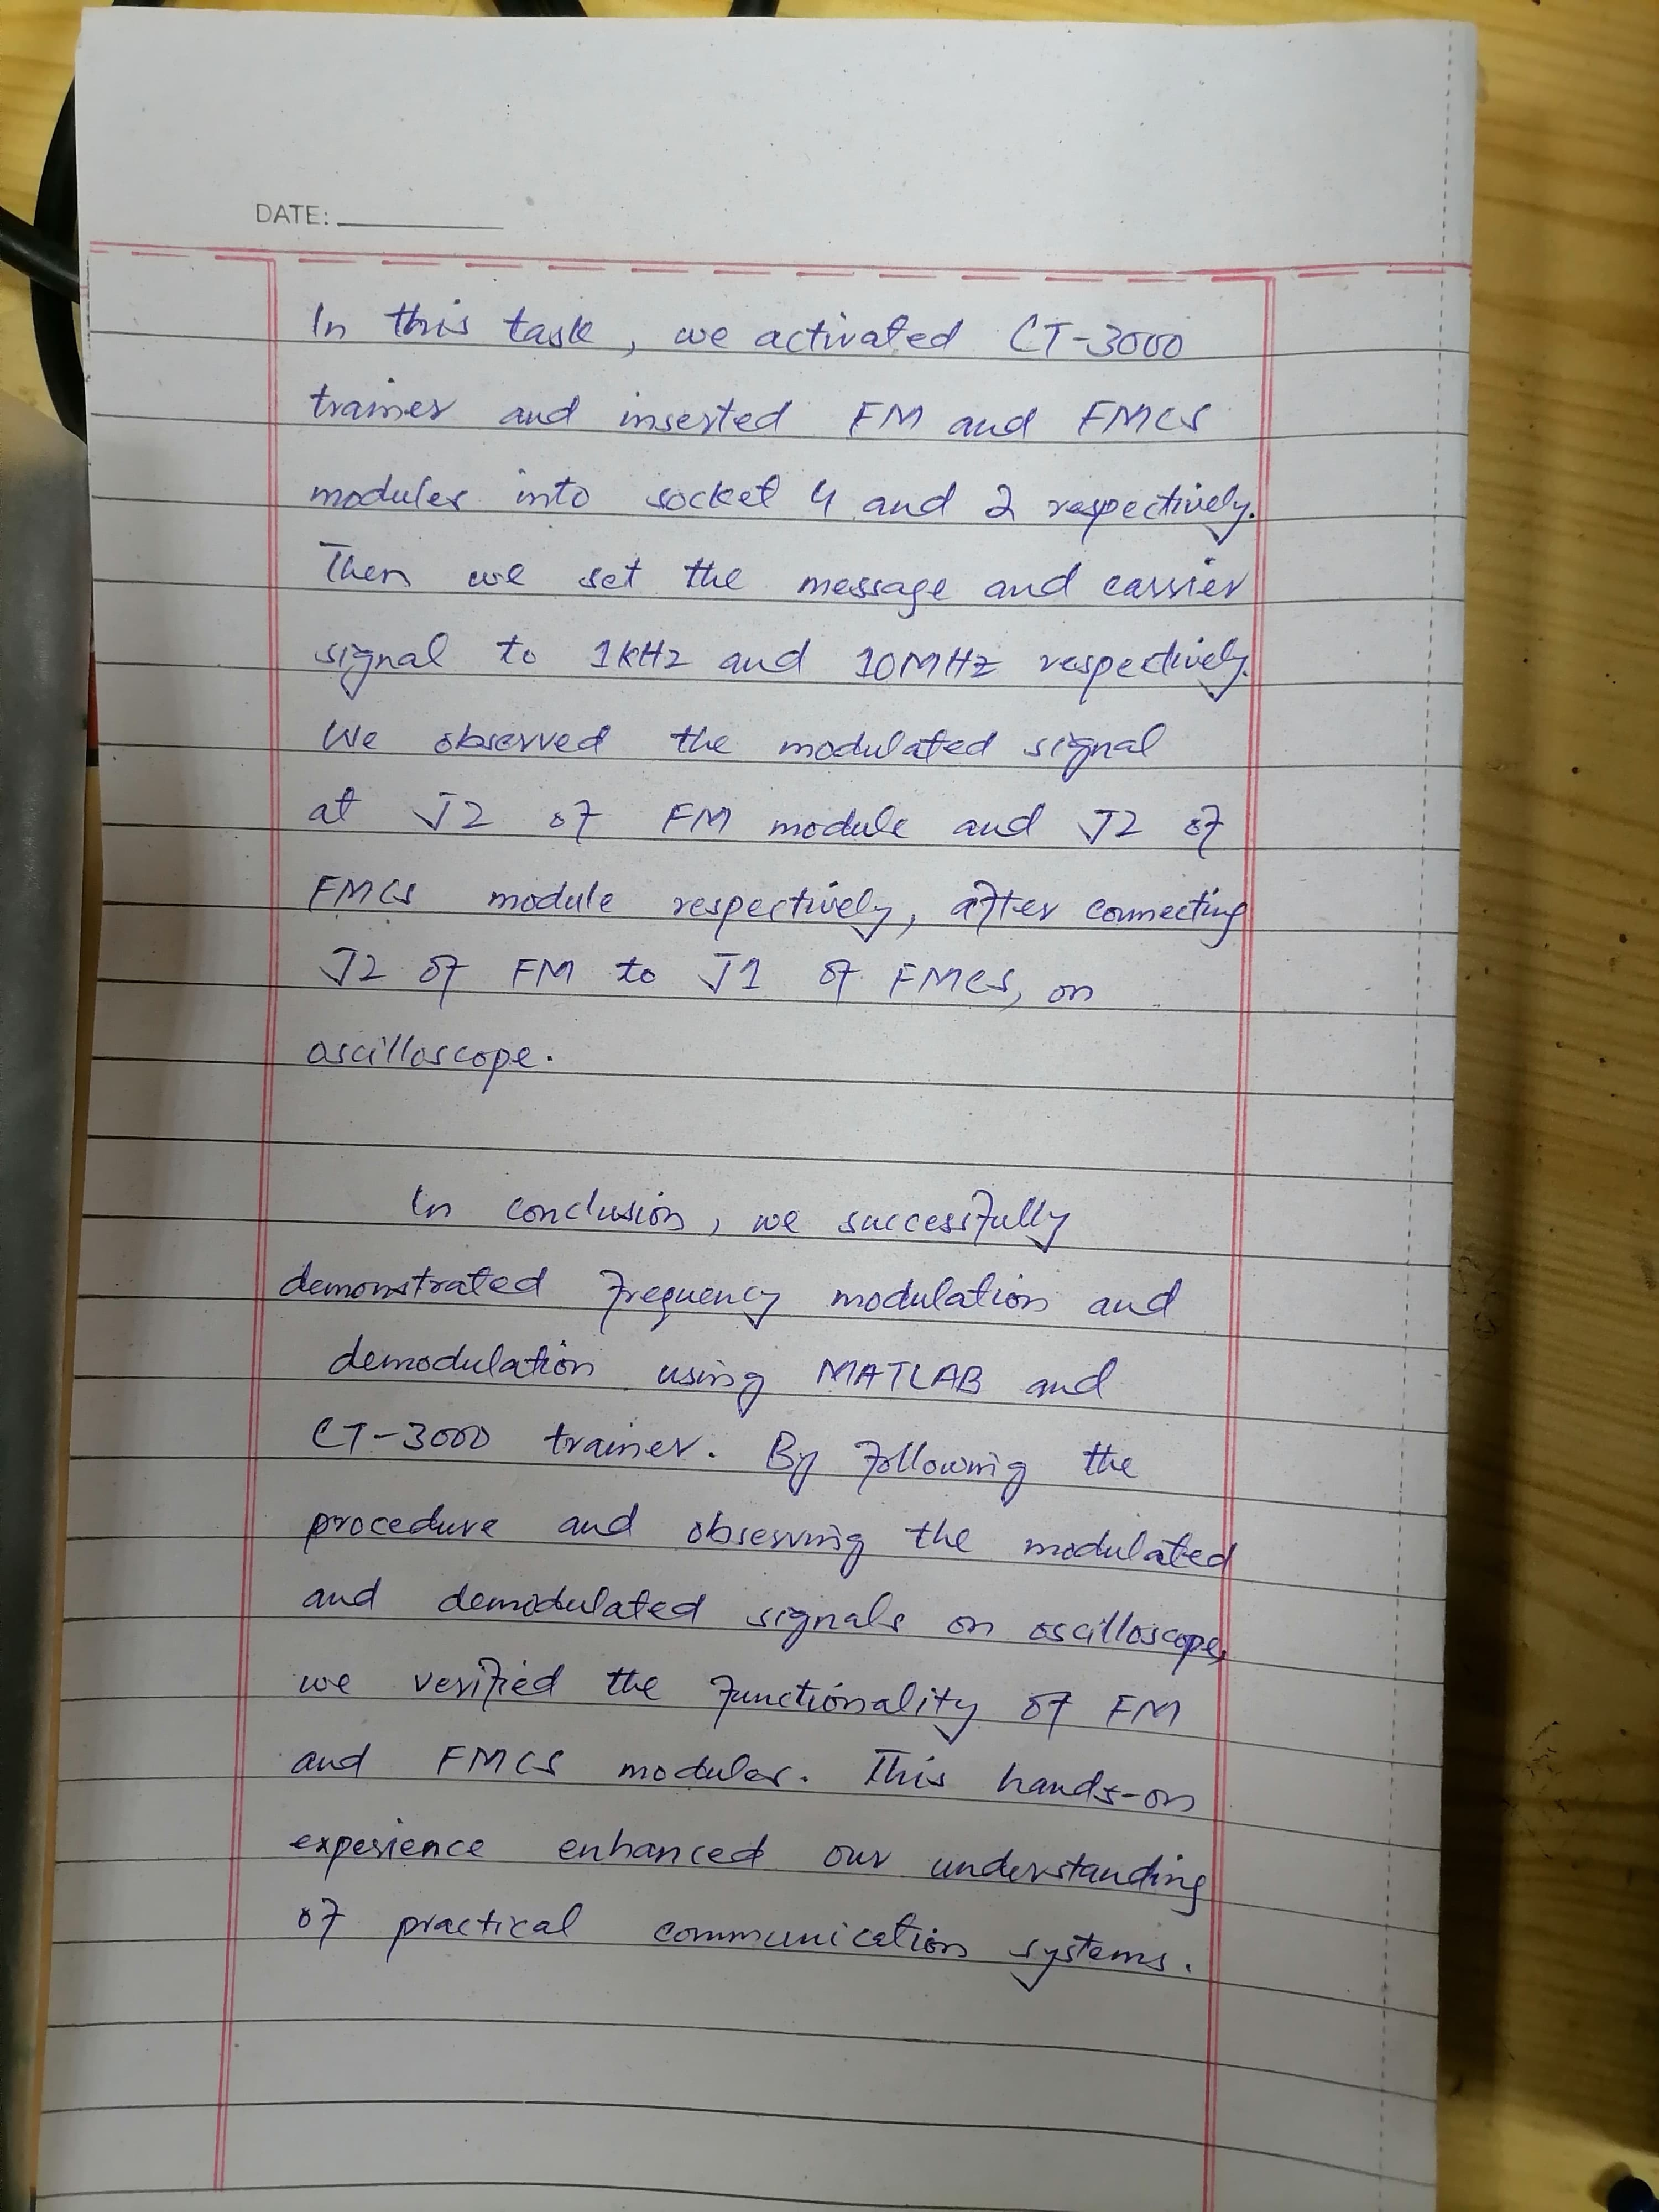 DATE:
In this task, we activated CT-3000
trainer and inserted FM and FMCS
modules into socket 4 and 2 respectively.
Then we set the message and carrier
signal to 1kHz and 10MHz respectively.
We observed the modulated signal
at J2 of FM module and J2 of
FMCS module respectively, after connecting
J2 of FM to J1 of FMCS, on
oscilloscope.
In conclusion, we successfully
demonstrated frequency modulation and
demodulation using MATLAB and
CT-3000 trainer. By following the
procedure and observing the modulated
and demodulated signals on oscilloscope,
we verified the functionality of FM
and FMCS modules. This hands-on
experience enhanced our understanding
of practical communication systems.